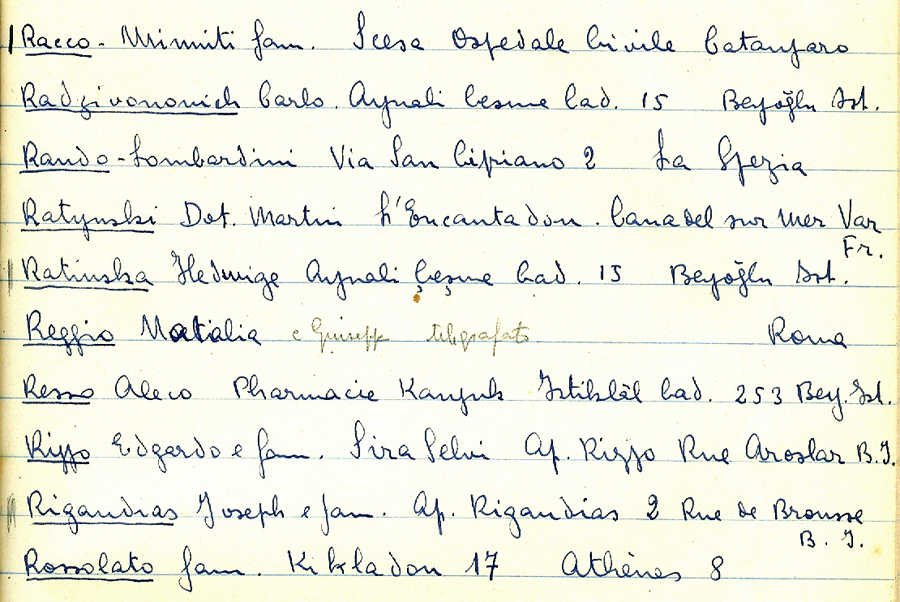 Racco - Mimiti fam. Scesa Ospedale Civile Catanzaro
Radzivononich Carlo. Aynali Cesme Cad. 15 Beyoğlu Ist.
Rando - Lombardini Via San Cipriano 2 La Spezia
Ratynski Dot. Martin L'Encantadou. Canadel sur Mer Var
Fr.
Ratinska Hedwige Aynali Çeşme Cad. 15 Beyoğlu Ist.
Reggio Natalia e Giuseppe telegrafato Roma
Resso Aleco Pharmacie Kanzuk Istiklâl Cad. 253 Bey. Ist.
Rizzo Edgardo e fam. Sira Selvi Ap. Rizzo Rue Aroslar B.I.
Rigaudias Joseph e fam. Ap. Rigaudias 2 Rue de Brousse
B. I.
Rossolato fam. Kikladon 17 Athènes 8